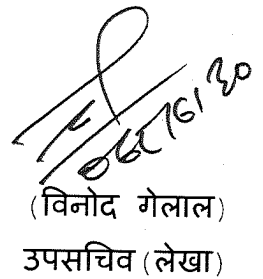 (विनोद गेलाल)
उपसचिव (लेखा)